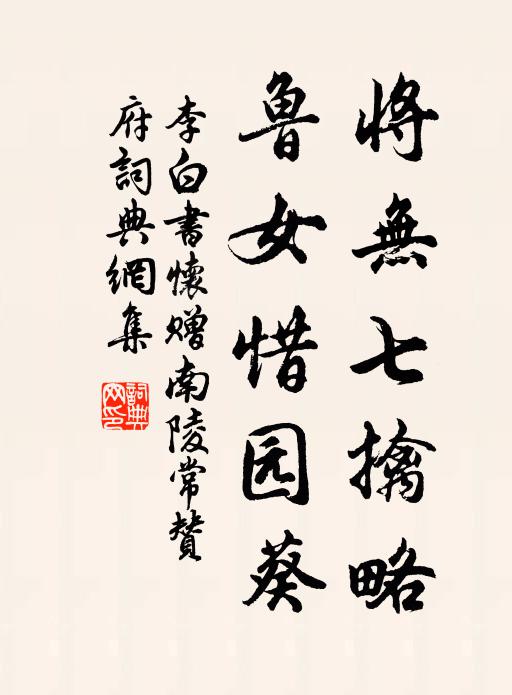 將無七擒略
魯女惜园葵
李白書懷贈南陵常贊
府詞典網集
詞典
网印